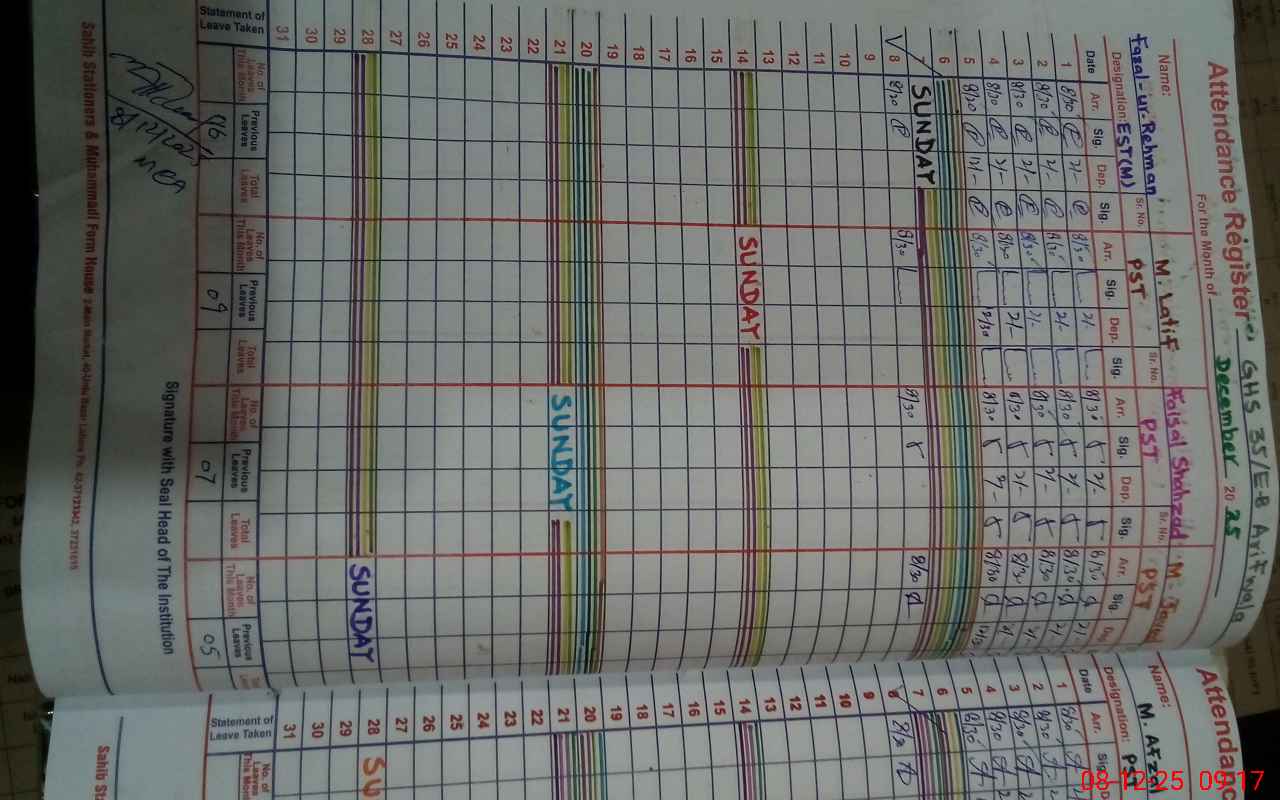 Attendance Register GHS 35/E-B Arifwala
For the Month of December 2025
Name: Fazal-ur-Rehman Sr. No. M. Latif Sr. No. Faisal Shahzad Sr. No. M.
Designation: EST(M) PST PST PST
Date Arr. Sig. Dep. Sig. Arr. Sig. Dep. Sig. Arr. Sig. Dep. Sig. Arr. Sig. Dep
1 8/30 2/- 8/30 2/- 8/30 2/- 8/30 2/-
2 8/30 2/- 8/30 2/- 8/30 2/- 8/30 2/-
3 8/30 2/- 8/30 2/- 8/30 2/- 8/30 2/-
4 8/30 2/- 8/30 2/- 8/30 2/- 8/30 2/-
5 8/30 12/- 8/30 12/30 8/30 8/30
6
7 SUNDAY
8 8/30 8/30 8/30 8/30
9
10
11
12
13
14 SUNDAY
15
16
17
18
19
20
21 SUNDAY
22
23
24
25
26
27
28 SUNDAY
29
30
31
Statement of Leave Taken
No. of Leaves This Month Previous Leaves Total Leaves No. of Leaves This Month Previous Leaves Total Leaves No. of Leaves This Month Previous Leaves Total Leaves No. of Leaves This Month Previous Leaves
09 07 05
8/12/2025
MEA
Signature with Seal Head of The Institution
Sahib Stationers & Muhammadi Form House 2-Main Market, 40-Urdu Bazar Lahore Ph: 42-37123342, 37231615
Attendanc
Name: M. Afzal
Designation: PST
Date Arr. Sig. D
1 8/30
2 8/30
3 8/30
4 8/30
5 8/30
6
7
8 8/30
9
10
11
12
13
14
15
16
17
18
19
20
21
22
23
24
25
26
27
28 SU
29
30
31
Statement of Leave Taken
No. of Leaves This Month
Sahib St
08-12-25 09:17